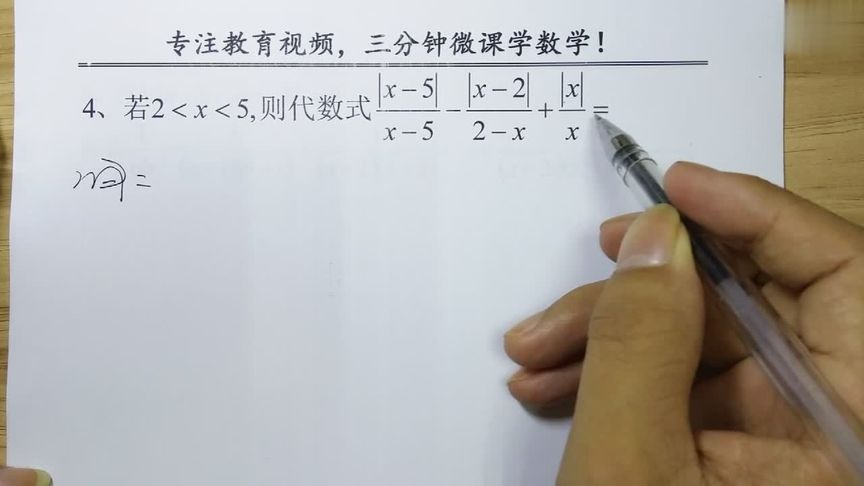 专注教育视频，三分钟微课学数学！
4、若2 < x < 5,则代数式|x－5|/x－5 － |x－2|/2－x + |x|/x =
解 =